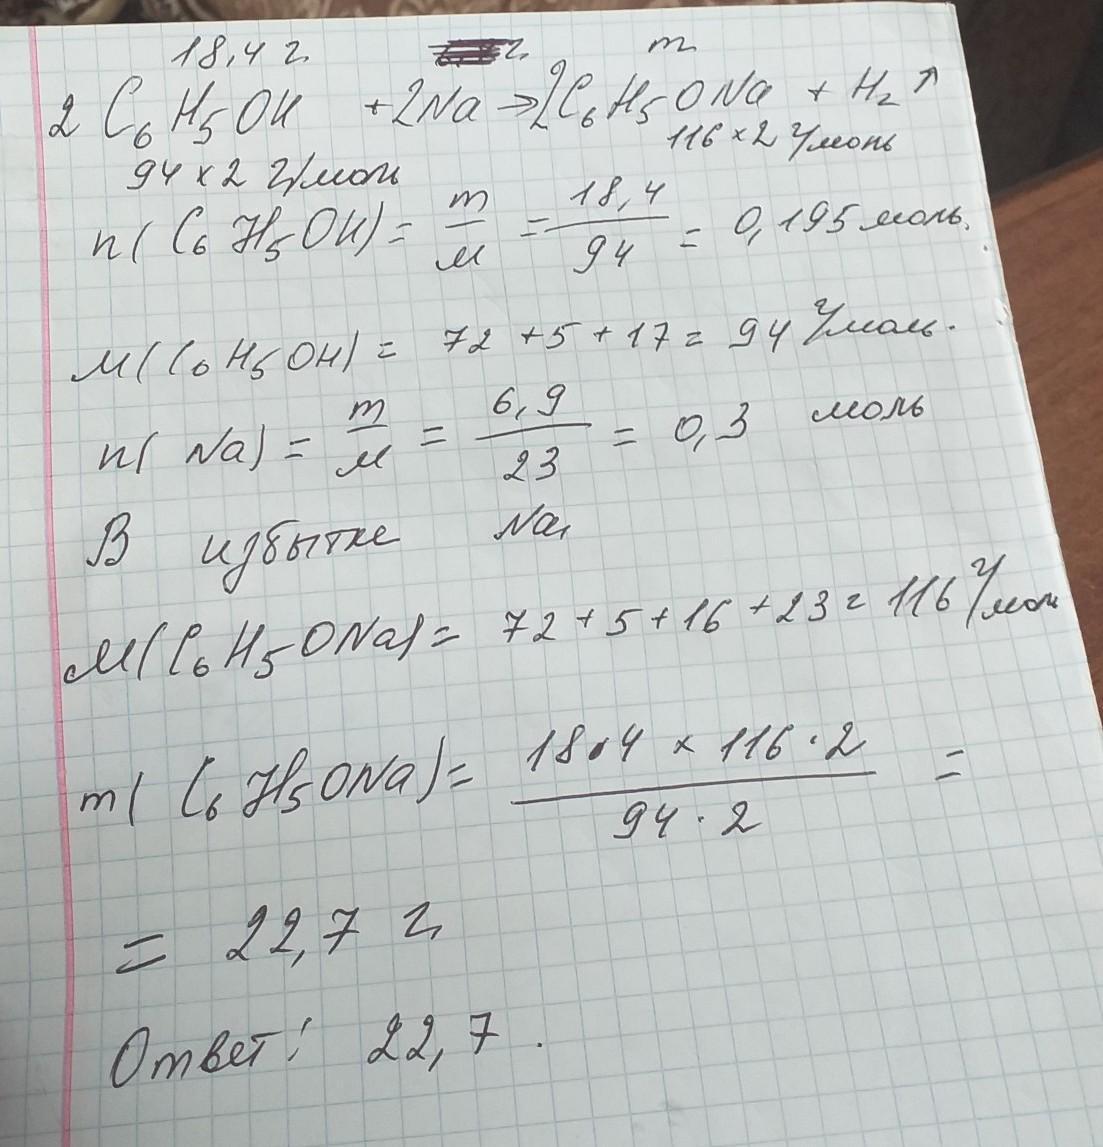 18,4 г. m
2 C₆H₅OH + 2Na → 2C₆H₅ONa + H₂↑
94 × 2 г/моль 116 × 2 г/моль
n(C₆H₅OH) = m/M = 18,4/94 = 0,195 моль.
M(C₆H₅OH) = 72 + 5 + 17 = 94 г/моль.
n(Na) = m/M = 6,9/23 = 0,3 моль
В избытке Na,
M(C₆H₅ONa) = 72 + 5 + 16 + 23 = 116 г/моль
m(C₆H₅ONa) = 18.4 × 116 · 2 / 94 · 2 =
= 22,7 г,
Ответ: 22,7.